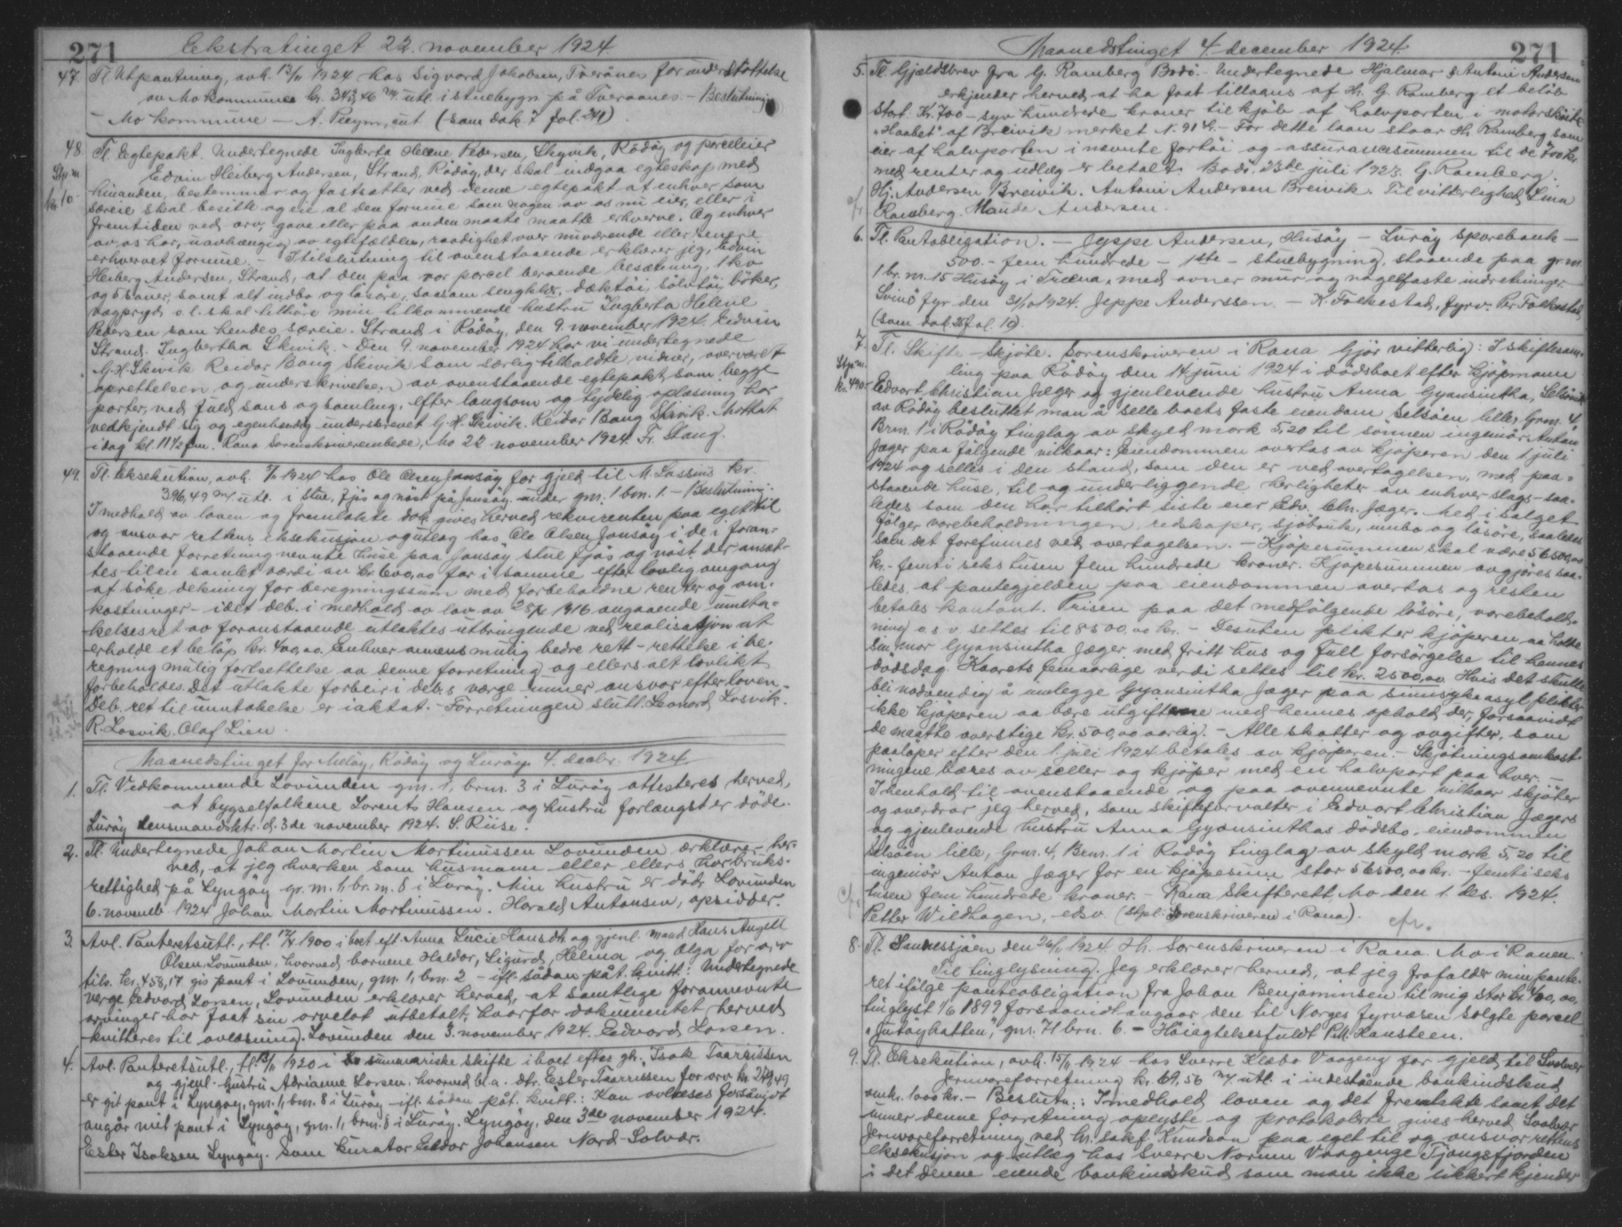 271
Ekstratinget 22. november 1924.
47. Tl. Utpantning, avh. 13/11 1924 hos Sigvard Jakobsen, Tverånes for understöttelse
av Mo kommune kr. 343,46 m/ utl. i stuebygn. på Tveraanes. - Beslutning:
- Mo kommune - A. Meyer, ent (som dok. 7 fol. 241).
48. Tl. Egtepakt. Undertegnede Ingberta Helene Pedersen, Skyvik, Rödöy og parceleier
Edvin Heiberg Andersen, Strand, Rödöy, der skal indgaa egteskap med
hinanden, bestemmer og fastsætter ved denne egtepakt at enhver som
særeie skal besitte og eie al den formue som nogen av os nu eier, eller i
fremtiden ved arv, gave eller paa anden maate maatte erhverve. Og enhver
av os har, uavhængig av egtefællen, raadighet over nuværende eller senere
erhvervet formue. - I tilslutning til ovenstaaende erklærer jeg, Edvin
Heiberg Andersen, Strand, at den paa vor parcel beroende besætning, 1 ko
og 5 sauer, samt alt indbo og lösöre, saasom sengklær, dæktöi, sölvtöi, böker,
vægpryd, o.l. skal tilhöre min tilkommende hustru Ingberta Helene
Pedersen som hendes særeie. Strand i Rödöy, den 9. november 1924. Edvin
Strand. Ingbertha Skivik. - Den 9. november 1924 har vi undertegnede
G. H. Skivik Reidar Bang Skivik som særlig tilkaldte vidner, overværet
oprettelsen og underskrivelsen av ovenstaaende egtepakt som begge
parter, ved fuld sans og samling, efter langsom og tydelig oplæsning har
vedkjendt sig og egenhændig underskrevet G. H. Skivik. Reidar Bang Skivik. Mottat
idag kl 11 1/2 fm. Rana sorenskriverembede, Mo 22 november 1924. Fr. Stang.
49. Tl. Eksekution, avh. 1924 hos Ole Olsen Jansöy for gjeld til M. Lassens kr.
396,49 m/ utl. i stue, fjös og nöst på Jansöy, under gnr. 1 bnr. 1. - Beslutning:
I medhold av loven og fremlakte dok. gives herved rekvirenten paa eget til
og ansvar rettens eksekusjon og utlæg hos Ole Olsen Jansöy i de i foran-
staaende forretning nevnte huse paa Jansöy stue fjös og nöst der ansæt-
tes til en samlet værdi av kr. 600,00 for i samme efter lovlig omgang
at söke dekning for beregningssum med forbeholdne renter og om-
kostninger - idet deb. i medhold av lov av 1916 angaaende unnta-
kelsesret av foranstaaende utlaktes utbringende ved realisation at
erholde et belöp kr. 400,00. Enhver annens mulig bedre rett - rettelse i be-
regning mulig fortsettelse av denne forretning og ellers alt lovlikt
forbeholdes. Det utlakte forblir i deb.s værge under ansvar efter loven.
Deb. ret til unntakelse er iaktat. - Forretningen slutt. Leonard Losvik.
R. Losvik. Olaf Lien.
Maanedstinget for Melöy, Rödöy og Luröy 4. decbr. 1924.
1. Tl. Vedkommende Lovunden gnr. 1, brnr. 3 i Luröy attesteres herved,
at bygselfolkene Lorents Hansen og hustru forlængst er döde.
Luröy lensmandsktr. d. 3de november 1924. S. Riise.
2. Tl. Undertegnede Johan Martin Martinussen Lovunden erklærer her-
ved, at jeg hverken som husmann eller ellers har bruks-
rettighed på Lyngöy gr. nr. 1, br. nr. 8 i Luröy. Min hustru er död. Lovunden
6. novemb 1924 Johan Martin Martinussen. Harald Antonsen, opsidder.
3. Avl. Panteretsutl., tl. 1900 i boet eft. Anna Lucie Hansdt. og gjenl. mand Hans Angell
Olsen, Lovunden, hvorved barnene Haldor, Sigurd, Helina og Olga for arv
tils. kr. 458,17 gis pant i Lovunden, gnr. 1, bnr. 2 - ifl. sådan påt. kvitt: Undertegnede
verge Edvard Larsen, Lovunden erklærer herved, at samtlige forannevnte
arvinger har faat sin arvelot utbetalt, hvorfor dokumentet herved
kvitteres til avlæsning. Lovunden den 3. november 1924. Edvard Larsen.
4. Avl. Panteretsutl., tl. 1920 i summariske skifte i boet efter gb. Isak Taarrissen
og gjenl. hustru Adrianne Larsen, hvorved bl.a. dtr. Ester Taarrissen for arv kr. 249,49
er git pant i Lyngöy, gnr. 1, bnr. 8 i Luröy - ifl. sådan påt. kvitt: Kan avlæses forsåvidt
angår mit pant i Lyngöy, gnr. 1, brnr. 8 i Luröy. Lyngöy, den 3de november 1924.
Ester Isaksen Lyngöy. Som kurator Eeldor Johansen Nord-Solvær.
Maanedstinget 4. december 1924.
271
5. Tl. Gjældsbrev fra G. Ramberg Bodö. - Undertegnede Hjalmar & Antoni Andersen
erkjender herved at ha faat tillaans af Hr. G. Ramberg et belöb
stort Kr. 700 - syv hundrede kroner til kjöb af halvparten i motorskøite
"Haabet" af Breivik merket N. 91 - For dette laan staar Hr. Ramberg som
eier af halvparten i nevnte fartöi og assurancesummen til de 700 kr.
med renter og udlæg er betalt. Bodö, 23de juli 1923. G. Ramberg.
Hj. Andersen Breivik. Antoni Andersen Breivik. Til vitterlighed Lina
Ramberg. Maude Andersen.
6. Tl. Pantobligation. - Jeppe Andersen, Husöy - Luröy Sparebank -
500.- fem hundrede - 1ste - stuebygning, staaende paa gr. nr.
1 br. nr. 15 Husöy i Træna, med ovner mur og nagelfaste indretninger.
Svinö fyr den 31/10 1924. Jeppe Anderssen. - K. Falkestad, fyrv. Per Falkestad
(som dok. 25 fol. 10).
7. Tl. Skifte-skjöte. Sorenskriveren i Rana Gjör vitterlig: I skiftesam-
ling paa Rödöy den 14 juni 1924 i dödsboet efter kjöpmann
Edvart Christian Jæger og gjenlevende hustru Anna Gyansintha, Selsövik
av Rödöy besluttet man å selle boets faste eiendom Selsöen lille, Grnr. 4,
Brnr. 1 i Rödöy tinglag av skyld mark 5,20 til sönnen ingeniör Anton
Jæger paa fölgende vilkaar: Eiendommen overtas av kjöperen den 1 juli
1924 og selles i den stand, som den er ved overtagelsen, med paa-
staaende huse, til og underliggende herligheter av enhver slags - saa-
ledes som den har tilhört siste eier Edv. Chr. Jæger. Med i salget
fölger varebeholdningen, redskaper, sjöbruk, innbo og lösöre, saaledes
som det forefinnes ved overtagelsen. - Kjöpesummen skal være 56500,00
kr. - femti seks tusen fem hundrede kroner. Kjöpesummen avgjöres saa-
ledes at pantegjelden paa eiendommen overtas og resten
betales kontant. Prisen paa det medfölgende lösöre, varebehold-
ning o.s.v. settes til 8500,00 kr. - Desuten plikter kjöperen aa holde
sin mor Gyansintha Jæger med fritt hus og full forsörgelse til hennes
dödsdag. Kaarets femaarlige verdi settes til kr. 2500,00. Hvis det skulle
bli nödvendig å innlegge Gyansintha Jæger paa sinnsykeasyl plikter
ikke kjöperen aa bære utgifterne med hennes ophold der, forsaavidt
de maatte overstige kr. 500,00 aarlig. - Alle skatter og avgifter, som
paalöper efter den 1 juli 1924 betales av kjöperen. - Skjötningsomkost-
ningene bæres av seller og kjöper med en halvpart paa hver. -
I henhold til ovenstaaende og paa ovennevnte vilkaar skjöter
og overdrar jeg herved, som skifteforvalter i Edvart Christian Jægers
og gjenlevende hustru Anna Gyansinthas dödsbo, eiendommen
Selsöen lille, Grnr. 4, Brnr. 1 i Rödöy tinglag av skyld mark 5,20 til
ingeniör Anton Jæger for en kjöpesum stor 56500,00 kr. - femti seks
tusen fem hundrede kroner. Rana Skifterett, Mo den 1 des. 1924.
Petter Wildhagen, eds.v. (Stpl: Sorenskriveren i Rana).
8. Tl. Sandnessjöen den 26/11 1924 Hr. Sorenskriveren i Rana Mo i Ranen
Til tinglysning. Jeg erklærer herved, at jeg frafalder min pante-
ret ifölge pantobligation fra Johan Benjaminsen til mig stor kr. 400,00,
tinglyst 1/6 1899 forsaavidt angaar den til Norges fyrvæsen solgte parcel
"Jutöybatten", gnr. 71 brn. 6. - Höiagtelsesfuldt P. M. Hansteen.
9. Tl. Eksekution, avh. 15/11 1924 hos Sverre Klebo Vaageng for gjeld til Svolvær
Jernvareforretning kr. 69,56 m/ utl. i indestående bankindskud
omk. 1000 kr. - Beslutn.: I medhold loven og det fremlakte samt det
under denne forretning oplyste og protokollerte gives herved Svolvær
Jernvareforretning ved hr. sakf. Knudsen paa eget til og ansvar rettens
eksekusjon og utlæg hos Sverre Normu Vaagenge Tjongsfjorden
i det denne eiende bankindskud som man ikke sikkert kjender